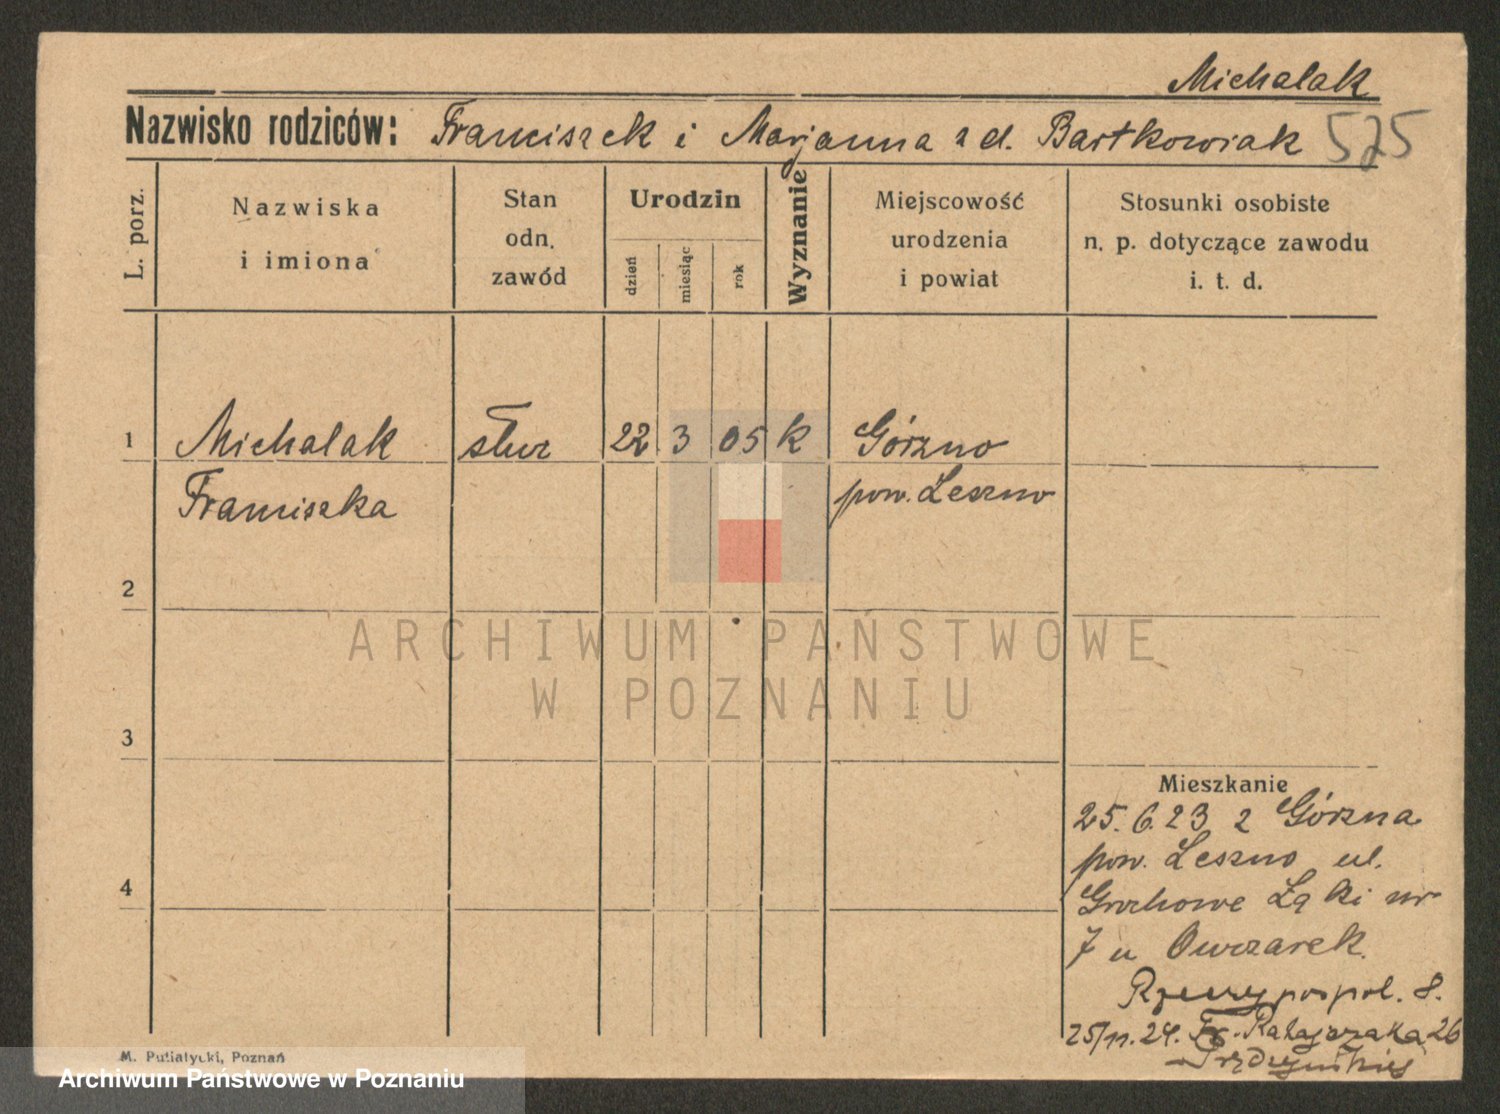 Michalak
Nazwisko rodziców: Franciszek i Marjanna z d. Bartkowiak 525
L. porz.
Nazwiska
i imiona
Stan
odn.
zawód
Urodzin
dzień
miesiąc
rok
Wyznanie
Miejscowość
urodzenia
i powiat
Stosunki osobiste
n. p. dotyczące zawodu
i. t. d.
1 Michalak służ 22 3 05 k Górzno
Franciszka pow. Leszno
2
ARCHIWUM PAŃSTWOWE
W POZNANIU
3
Mieszkanie
25.6.23 z Górzna
pow. Leszno ul.
4
Grochowe Łąki nr
7 u Owczarek.
Rzeczypospol. 8.
25/11.24. Fr. Ratajczaka 26
M. Putiatycki, Poznań
Archiwum Państwowe w Poznaniu